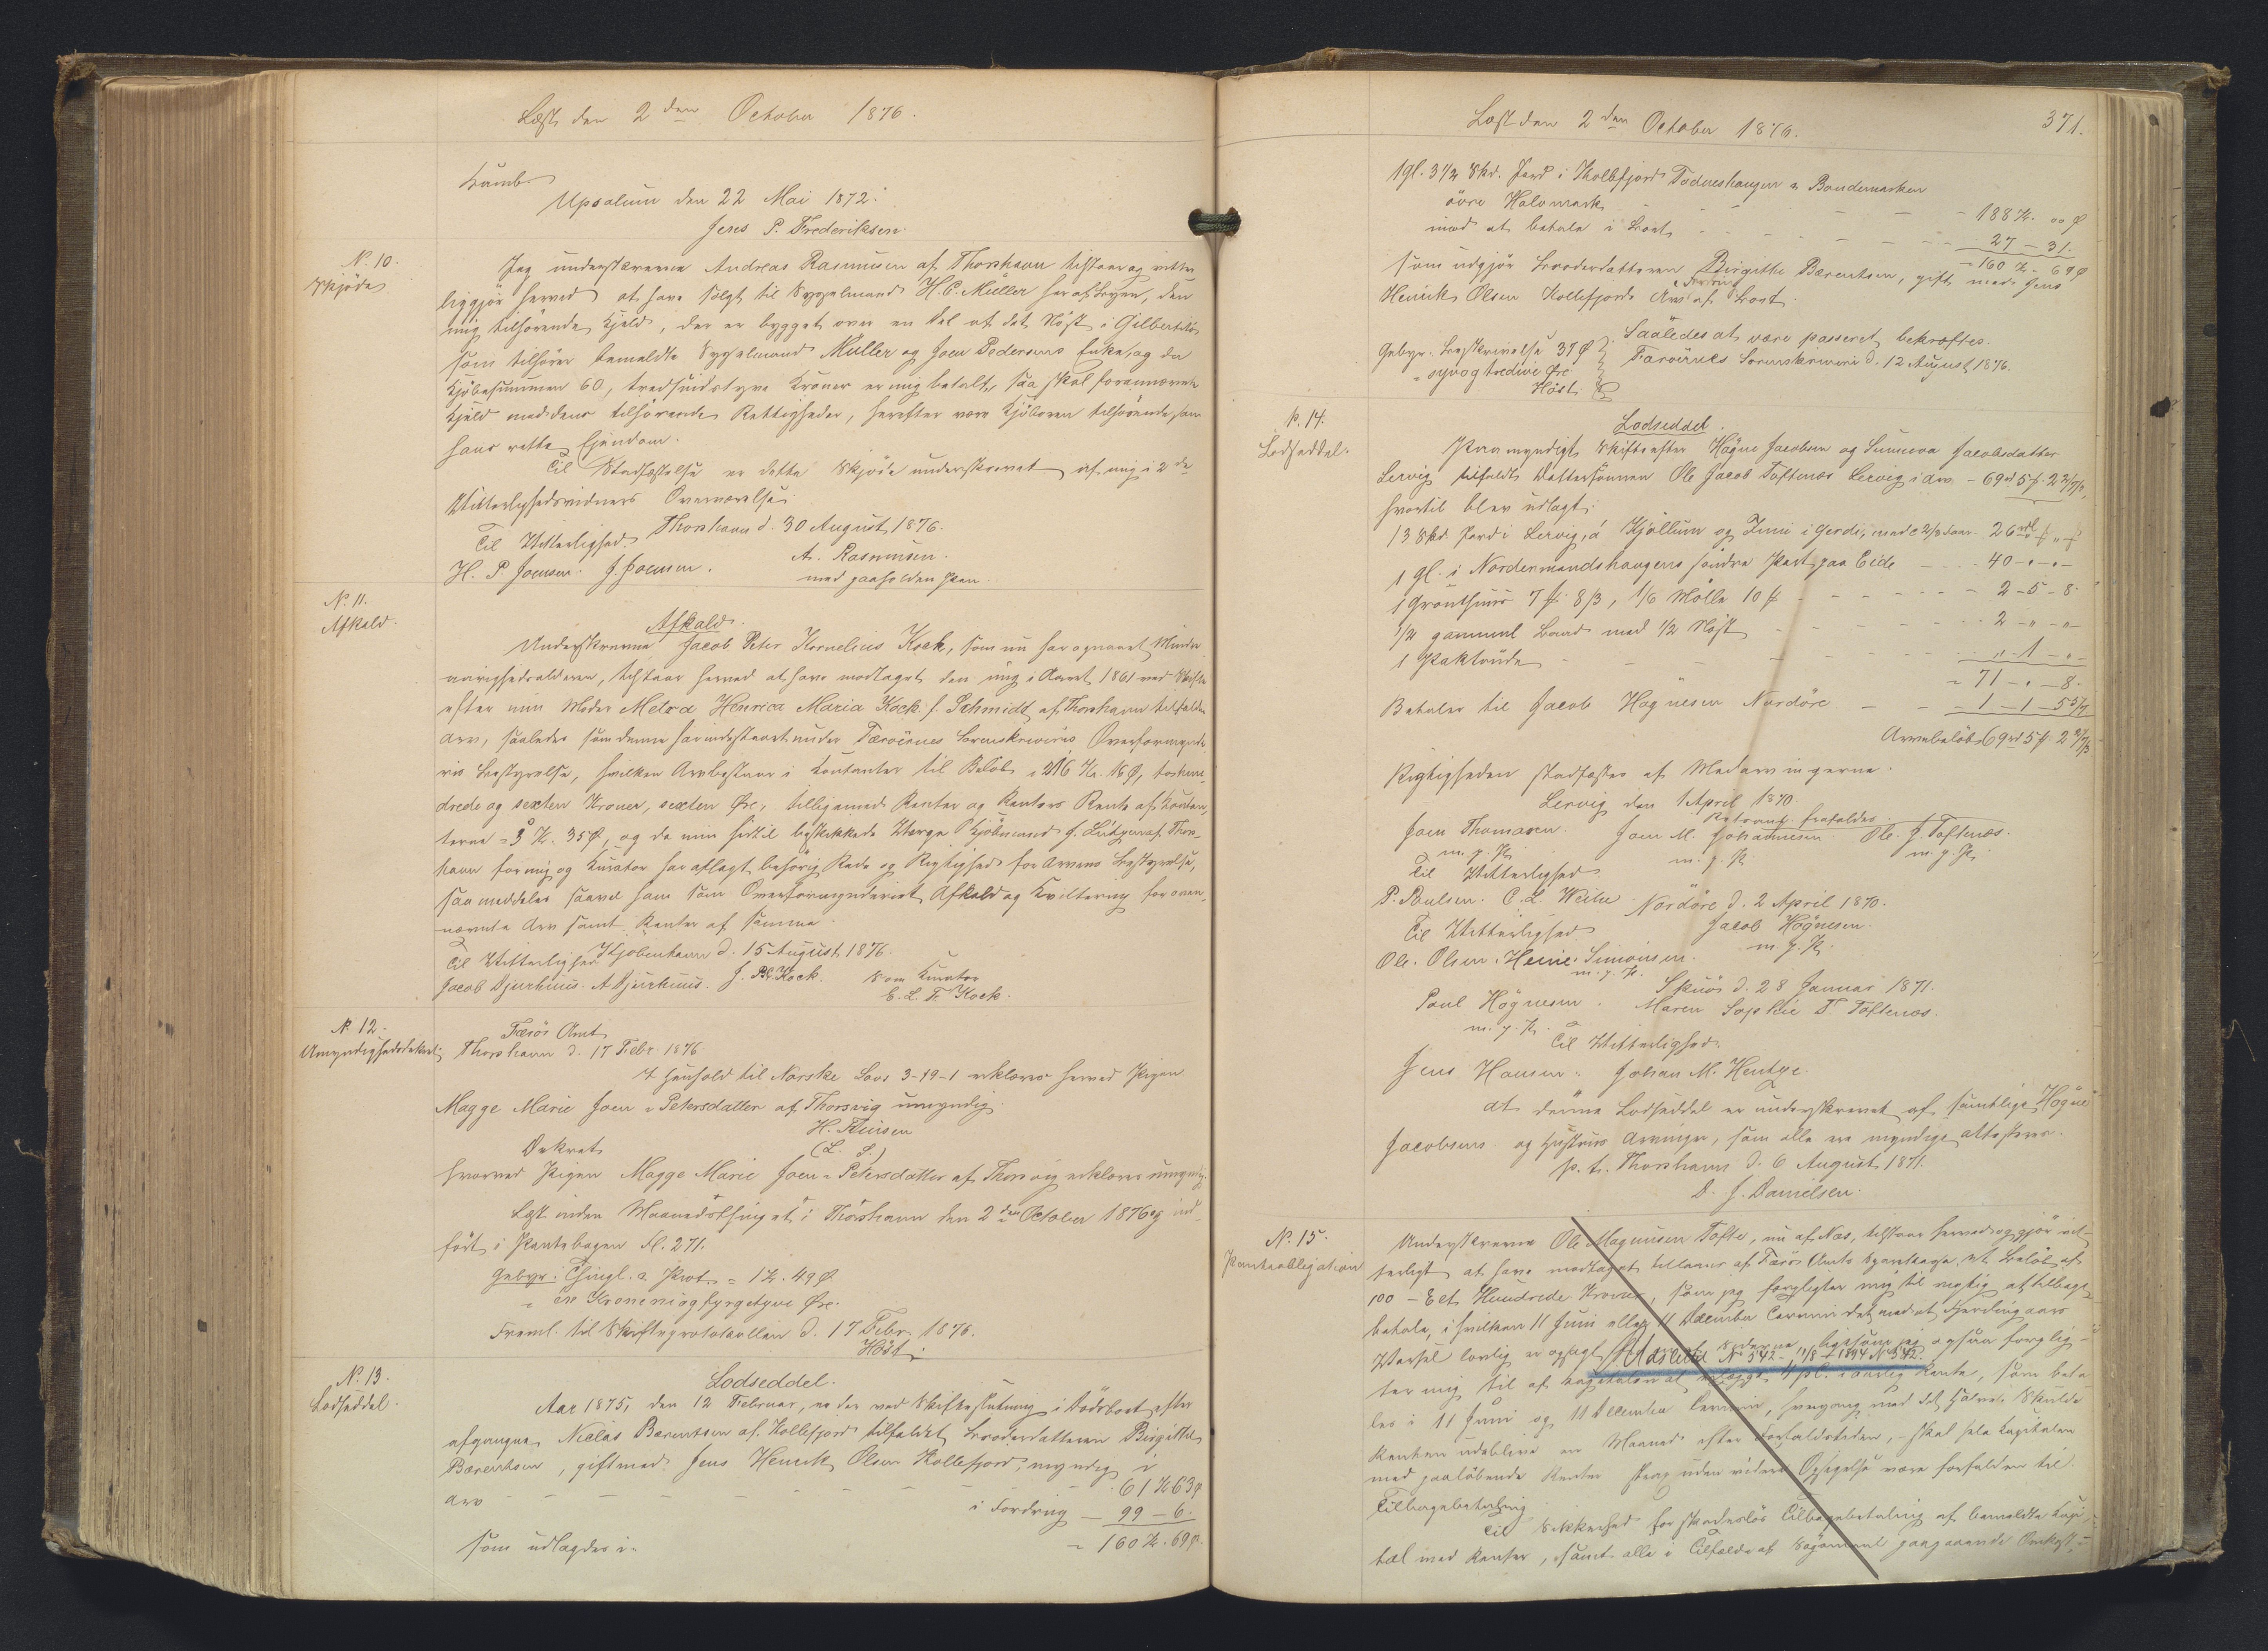 Læst den 2den October 1876.
Kumb.
Upsalum den 22 Mai 1872.
Jens P. Frederiksen.
N. 10.
Skjøde
Jeg underskrevne Andreas Rasmusen af Thorshavn tilstaar og vitter
liggjør herved at have solgt til Sysselmand H. C. Müller her af Byen, den
mig tilhørende Kjeld, der er bygget over en Del af det Nøst i Gilbertitø
som tilhører bemeldte Sysselmand Müller og Joen Pedersens Enke, og da
Kjøbesummen 60, tredsindstyve Kroner er mig betalt, saa skal forannævnte
Kjeld med dens tilhørende Rettigheder, herefter være Kjøberen tilhørende som
hans rette Ejendom.
Til Stadfæstelse er dette Skjøde underskrevet af mig i 2de
Vitterlighedsvidners Overværelse.
Thorshavn d. 30 August 1876.
Til Vitterlighed.
A. Rasmusen.
H. P. Joensen. J. Poulsen.
med paaholden Pen.
N. 11.
Afkald.
Afkald.
Underskrevne Jacob Peter Kornelius Kock, som nu har opnaaet Minder
aarighedsalderen, tilstaar herved at have modtaget den mig i Aaret 1861 ved Skifte
efter min Moder Metra Henrica Maria Kock f. Schmidt af Thorshavn tilfaldne
Arv, saaledes som denne har indestaaet under Færøernes Sorenskriveris Overformynde
ris Bestyrelse, hvilken Arv bestaar i Contanter til Beløb 216 Kr. 16 Ø, tohun
drede og sexten Kroner, sexten Øre, tilligemed Renter og Renters Rente af Contan
terne = 3 Kr. 35 Ø, og da min hidtil beskikkede Værge Kjøbmand J. Lützen af Thors
havn for mig og Kurator har aflagt behørig Rede og Rigtighed for Arvens Bestyrelse,
saa meddeles saavel ham som Overformynderiet Afkald og Kvittering for oven
nævnte Arv samt Renter af samme.
Kjøbenhavn d. 15 August 1876.
Til Vitterlighed
Jacob Djurhuus. A Djurhuus. J. P. K. Kock. Som Kurator
E. L. F. Kock.
N. 12.
Umyndighedsdekret
Færøe Amt
Thorshavn d. 17 Febr. 1876
I Henhold til Norske Lovs 3-19-1 erklæres herved Pigen
Magge Marie Joen = Petersdatter af Thorsvig umyndig.
H. Finsen
(L. S.)
Dekret
hvorved Pigen Magge Marie Joen = Petersdatter af Thorsvig erklæres umyndig.
Læst inden Maanedsthinget i Thorshavn den 2den October 1876 og ind-
ført i Pantebogen Fl. 271.
Gebyr: Thingl. & Prot. = 1 Kr. 49 Ø.
= en Krone niogfyrgetyve Øre.
Freml. til Skifteprotokollen d. 17 Febr. 1876.
Höst
N. 13.
Lodseddel.
Lodseddel.
Aar 1875, den 12 Februar, er der ved Skifteslutning i Dödsboet efter
afgangne Niclas Barentsen af Kollefjord tilfaldet Broderdatteren Birgitte
Barentsen, gift med Jens Henrik Olsen Kollefjord, myndig i
Arv - - - - - - 61 Kr 63 Ø
i Fordring - 99 - 6.
som udlagdes i = = 160 Kr. 69 Ø.
Læst den 2den October 1876.
371.
1 Gl. 3 1/2 Skd. Jord i Kolbfjord Todneshaugen & Bondemarken
øvre Halvmark - - - - 188 Kr. 00 Ø
mod at betale i Boet - - - - 27 - 31.
= 160 Kr. 69 Ø
som udgjør Broderdatteren Birgitte Barentsen, gift med Jens
Henrik Olsen Kollefjords Arv & Fordring af Boet.
Saaledes at være passeret bekræftes.
Gebyr. Beskrivelse 37 Ø
Færøernes Sorenskriveri d. 12 August 1876.
= syvogtredive Øre
Höst
N. 14.
Lodseddel.
Lodseddel.
Paa myndigt Skifte efter Högne Jacobsen og Sunneva Jacobsdatter
Lervig tilfaldt Dattersønnen Ole Jacob Toftenæs Lervig i Arv - 69 rd 5 ₰ 2 2/7 ß,
hvortil blev udlagt:
13 Skd. Jord i Lervig, á Kjöllum og Inni i Gerdi, med 2/3 - 26 rdl
1 Gl. i Nordermandshaugens søndre Part paa Eide - - 40 - „ -
1 Grönthuus 7 ₰ 8 ß, 1/6 Mølle 10 ₰ - - - - 2 - 5 - 8.
1/2 gammel Baad med 1/2 Nøst - - - - 2 - „ - „ -
1 - - - - „ - 1 - „ -
= 71 - „ - 8.
Betaler til Jacob Högnesen Nordöre - - = 1 - 1 - 5 5/7
Arvebeløb 69 rd 5 ₰ 2 2/7 ß
Rigtigheden stadfæstes af Medarvingerne.
Lervig den 1 April 1870.
Joen Thomasen. Joen M. Johannesen Ole J. Toftenæs.
m. p. P. m. p. P. m. p. P.
Til Vitterlighed
P. Poulsen. C. L. Weihe
Nordöre d. 2 April 1870.
Til Vitterlighed
Jacob Högnesen.
Ole Olsen. Heine Simonsen. m. p. P.
m. p. P.
Skuö d. 28 Januar 1871.
Poul Högnesen. Maren Sophie D. Toftenæs.
m. p. P.
Til Vitterlighed.
Jens Hansen. Johan M. Hentze.
At denne Lodseddel er underskrevet af samtlige Högne
Jacobsens og Hustrues Arvinger, som alle ere myndige attesteres.
p. t. Thorshavn d. 6 August 1871.
D. J. Danielsen.
N. 15.
Panteobligation
Underskrevne Ole Magnusen Tofte, nu af Næs, tilstaar herved og gjør vit-
terligt at have modtaget tillaans af Færøe Amts Sparekasse et Beløb af
100 - Eet Hundrede Kroner, som jeg forpligter mig til rigtig at tilbage
betale, i hvilken 11 Juni eller 11 December Termin det med et Fjerdingaars
Varsel lovlig er opsagt fra en af Siderne, ligesom jeg ogsaa forplig-
Udslettet No 542 - 11/8 - 1894 No 542.
ter mig til af Kapitalen at erlægge 4 pCt. i aarlig Rente, som beta
les i 11 Juni og 11 December Termin, hvergang med det halve. Skulde
Renten udeblive en Maaned efter Forfaldstiden, - skal hele Kapitalen
med paaløbende Renter strax uden videre Opsigelse være forfalden til
Tilbagebetaling.
Til Sikkerhed for skadesløs Tilbagebetaling af bemeldte Kapi-
tal med Renter, samt alle i Tilfælde af Søgsmaal paagaaende Omkost-